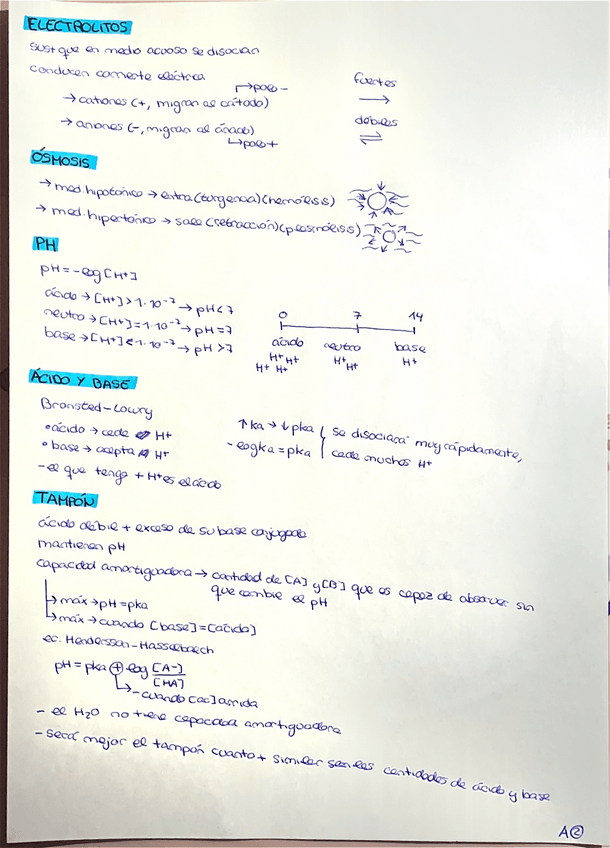 ELECTROLITOS
sust que en medio acuoso se disocian
conducen corriente eléctrica
→ cationes (+, migran al cátodo) → polo -
→ aniones (-, migran al ánodo) → polo +
fuertes
→
débiles
⇌
ÓSMOSIS
→ med. hipotónico → entra (turgencia) (hemólisis)
→ med. hipertónico → sale (retracción) (plasmólisis)
PH
pH = -log [H+]
ácido → [H+] > 1·10⁻⁷ → pH < 7
neutro → [H+] = 1·10⁻⁷ → pH = 7
base → [H+] < 1·10⁻⁷ → pH > 7
0 7 14
ácido neutro base
H+ H+ H+ H+
H+ H+
H+
ÁCIDO Y BASE
Bronsted-Lowry
• ácido → cede H+
• base → acepta H+
- el que tenga + H+ es el ácido
↑ka → ↓pka
-logka = pka
se disociará muy rápidamente,
cede muchos H+
TAMPÓN
ácido débil + exceso de su base conjugada
mantienen pH
capacidad amortiguadora → cantidad de [A] y [B] que es capaz de absorver sin
que cambie el pH
→ máx → pH = pka
→ máx → cuando [base] = [ácido]
ec. Henderson-Hasselbalch
pH = pka + log [A-]/[HA]
→ - cuando [ac] arriba
- el H₂O no tiene capacidad amortiguadora
- será mejor el tampón cuanto + similar sean las cantidades de ácido y base
A②